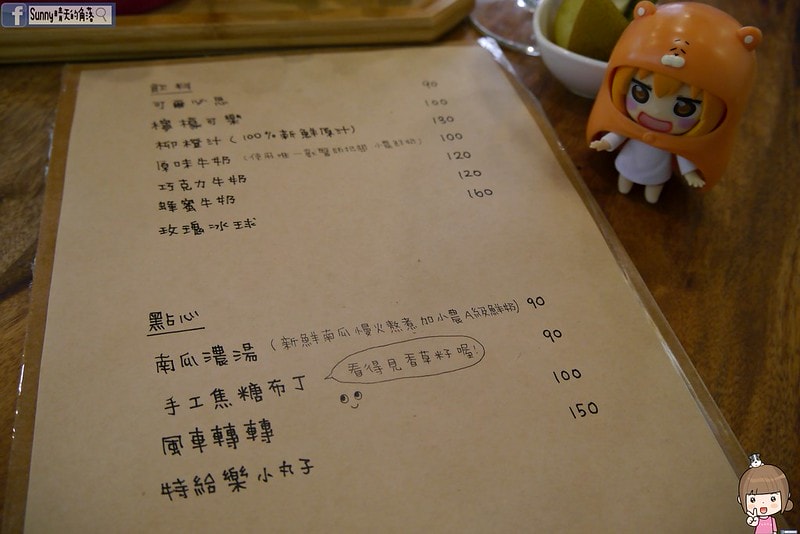 Sunny晴天的角落
飲料
可爾必思 90
檸檬可樂 100
柳橙汁 (100%新鮮原汁) 130
原味牛奶 100
巧克力牛奶 120
蜂蜜牛奶 120
玫瑰冰球 160
點心
南瓜濃湯 (新鮮南瓜慢火熬煮加小農A級鮮奶) 90
手工焦糖布丁 看得見香草籽喔! 90
風車轉轉 100
特給樂小丸子 150